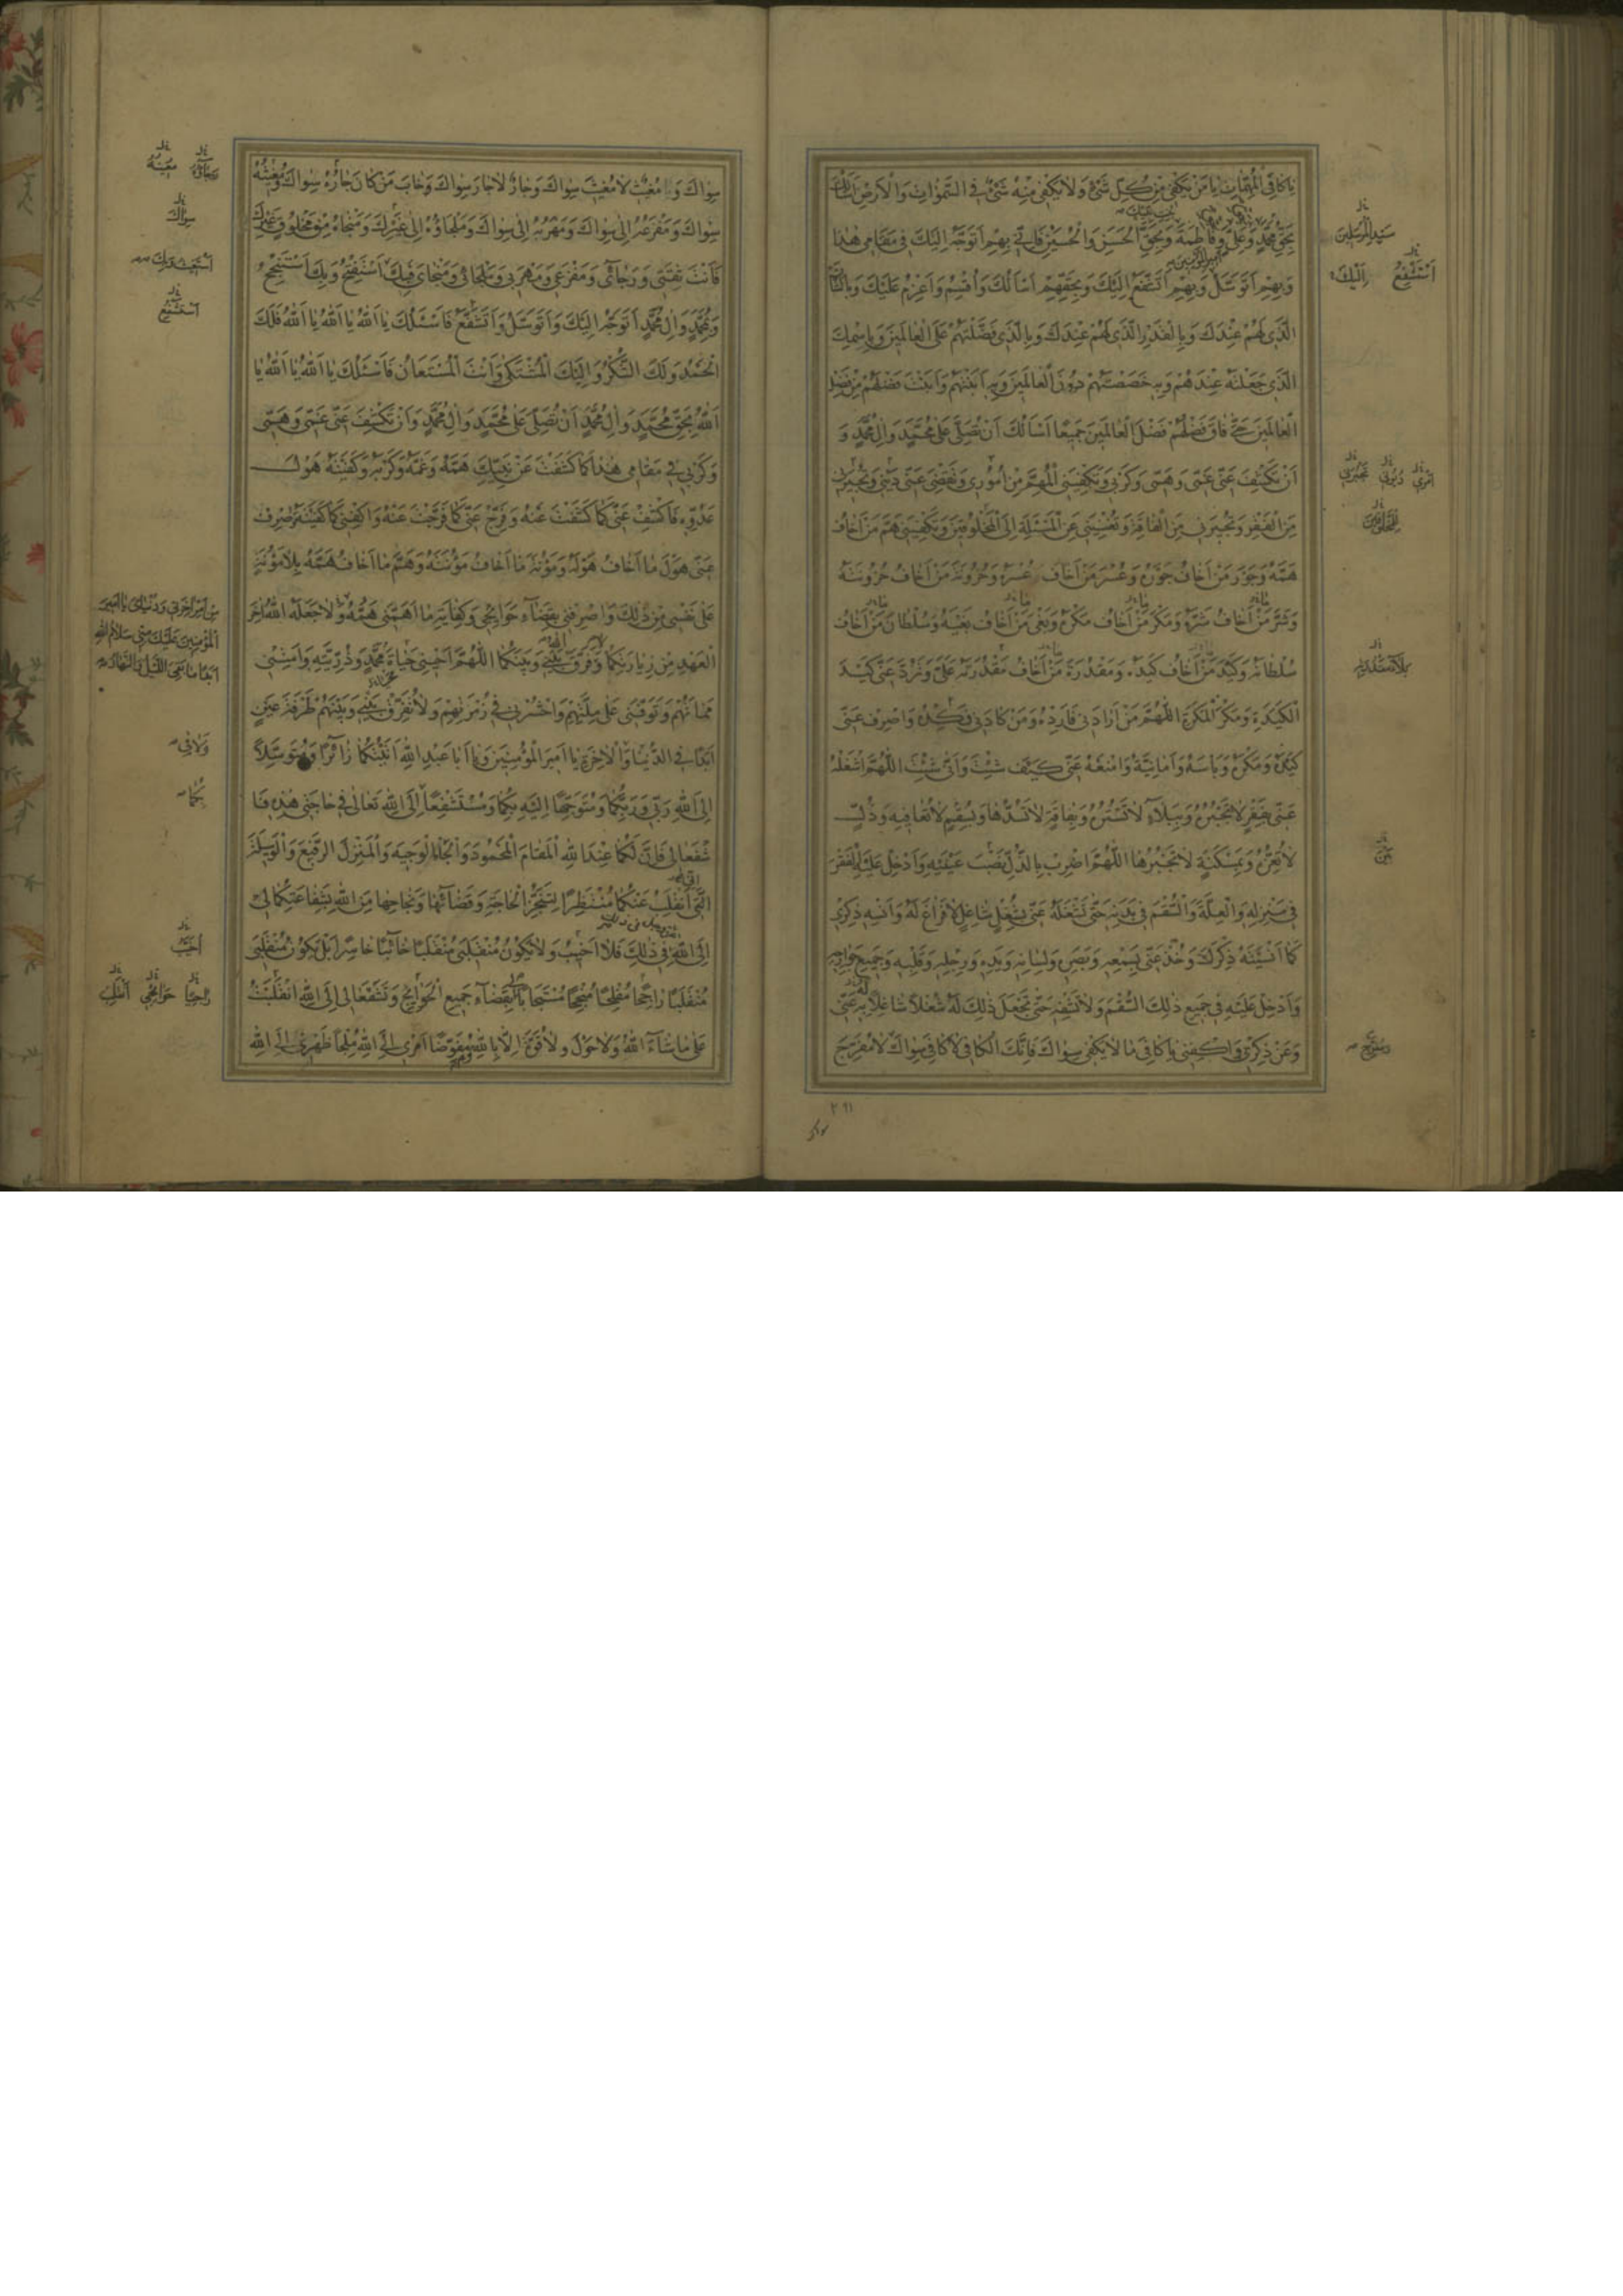 يا كافِيَ الْمُهِمّاتِ يا مَنْ يَكْفي مِنْ كُلِّ شَيْءٍ وَلا يَكْفي مِنْهُ شَيْءٌ فِي السَّمواتِ وَالْاَرْضِ اَسْأَلُكَ
بِحَقِّ مُحَمَّدٍ وَعَلِيٍّ وَفاطِمَةَ وَبِحَقِّ الْحَسَنِ وَالْحُسَيْنِ فَاِنّي بِهِمْ اَتَوَجَّهُ اِلَيْكَ في مَقامي هذا
وَبِهِمْ اَتَوَسَّلُ وَبِهِمْ اَتَشَفَّعُ اِلَيْكَ وَبِحَقِّهِمْ اَسْاَلُكَ وَاُقْسِمُ وَاَعْزِمُ عَلَيْكَ وَبِالشَّأْنِ
الَّذي لَهُمْ عِنْدَكَ وَبِالْقَدْرِ الَّذي لَهُمْ عِنْدَكَ وَبِالَّذي فَضَّلْتَهُمْ عَلَى الْعالَمينَ وَبِاسْمِكَ
الَّذي جَعَلْتَهُ عِنْدَهُمْ وَبِهِ خَصَصْتَهُمْ دُونَ الْعالَمينَ وَبِهِ اَبَنْتَهُمْ وَاَبَنْتَ فَضْلَهُمْ مِنْ فَضْلِ
الْعالَمينَ حَتّى فاقَ فَضْلُهُمْ فَضْلَ الْعالَمينَ جَميعًا اَسْاَلُكَ اَنْ تُصَلِّيَ عَلى مُحَمَّدٍ وَالِ مُحَمَّدٍ وَ
اَنْ تَكْشِفَ عَنّي غَمّي وَهَمّي وَكَرْبي وَتَكْفِيَنِي الْمُهِمَّ مِنْ اُمُوري وَتَقْضِيَ عَنّي دَيْني وَتُجيرَني
مِنَ الْفَقْرِ وَتُجيرَني مِنَ الْفاقَةِ وَتُغْنِيَني عَنِ الْمَسْئَلَةِ اِلَى الْمَخْلُوقينَ وَتَكْفِيَني هَمَّ مَنْ اَخافُ
هَمَّهُ وَجَوْرَ مَنْ اَخافُ جَوْرَهُ وَعُسْرَ مَنْ اَخافُ عُسْرَهُ وَحُزُونَةَ مَنْ اَخافُ حُزُونَتَهُ
وَشَرَّ مَنْ اَخافُ شَرَّهُ وَمَكْرَ مَنْ اَخافُ مَكْرَهُ وَبَغْيَ مَنْ اَخافُ بَغْيَهُ وَسُلْطانَ مَنْ اَخافُ
سُلْطانَهُ وَكَيْدَ مَنْ اَخافُ كَيْدَهُ وَمَقْدُرَةَ مَنْ اَخافُ مَقْدُرَتَهُ عَلَيَّ وَتَرُدَّ عَنّي كَيْدَ
الْكَيَدَةِ وَمَكْرَ الْمَكَرَةِ اَللّهُمَّ مَنْ اَرادَني فَارِدْهُ وَمَنْ كادَني فَكِدْهُ وَاصْرِفْ عَنّي
كَيْدَهُ وَمَكْرَهُ وَبَأْسَهُ وَاَمانِيَّهُ وَامْنَعْهُ عَنّي كَيْفَ شِئْتَ وَاَنّى شِئْتَ اَللّهُمَّ اشْغَلْهُ
عَنّي بِفَقْرٍ لا تَجْبُرُهُ وَبِبَلاءٍ لا تَسْتُرُهُ وَبِفاقَةٍ لا تَسُدُّها وَبِسُقْمٍ لا تُعافيهِ وَذُلٍّ
لا تُعِزُّهُ وَبِمَسْكَنَةٍ لا تَجْبُرُها اَللّهُمَّ اضْرِبْ بِالذُّلِّ نَصْبَ عَيْنَيْهِ وَاَدْخِلْ عَلَيْهِ الْفَقْرَ
في مَنْزِلِهِ وَالْعِلَّةَ وَالسُّقْمَ في بَدَنِهِ حَتّى تَشْغَلَهُ عَنّي بِشُغْلٍ شاغِلٍ لا فَراغَ لَهُ وَاَنْسِهِ ذِكْري
كَما اَنْسَيْتَهُ ذِكْرَكَ وَخُذْ عَنّي بِسَمْعِهِ وَبَصَرِهِ وَلِسانِهِ وَيَدِهِ وَرِجْلِهِ وَقَلْبِهِ وَجَميعِ جَوارِحِهِ
وَاَدْخِلْ عَلَيْهِ في جَميعِ ذلِكَ السُّقْمَ وَلا تَشْفِهِ حَتّى تَجْعَلَ ذلِكَ لَهُ شُغْلًا شاغِلًا بِهِ عَنّي
وَعَنْ ذِكْري وَاكْفِني يا كافِيَ ما لا يَكْفي سِواكَ فَاِنَّكَ الْكافي لا كافِيَ سِواكَ لا مُفَرِّجَ
سَيِّدِ الْمُرْسَلينَ
اَسْتَشْفِعُ اِلَيْكَ
الْمَخْلُوقينَ
٢٩١
سواك
سِواكَ وَمُغيثٌ لا مُغيثَ سِواكَ وَجارٌ لا جارَ سِواكَ وَخابَ مَنْ كانَ جارُهُ سِواكَ وَمُغيثُهُ
سِواكَ وَمَفْزَعُهُ اِلى سِواكَ وَمَهْرَبُهُ اِلى سِواكَ وَمَلْجَاؤُهُ اِلى غَيْرِكَ وَمَنْجاهُ مِنْ مَخْلُوقٍ غَيْرِكَ
فَاَنْتَ ثِقَتي وَرَجائي وَمَفْزَعي وَمَهْرَبي وَمَلْجَائي وَمَنْجايَ فَبِكَ اَسْتَفْتِحُ وَبِكَ اَسْتَنْجِحُ
وَبِمُحَمَّدٍ وَالِ مُحَمَّدٍ اَتَوَجَّهُ اِلَيْكَ وَاَتَوَسَّلُ وَاَتَشَفَّعُ فَاَسْئَلُكَ يا اَللهُ يا اَللهُ يا اَللهُ فَلَكَ
الْحَمْدُ وَلَكَ الشُّكْرُ وَاِلَيْكَ الْمُشْتَكى وَاَنْتَ الْمُسْتَعانُ فَاَسْئَلُكَ يا اَللهُ يا اَللهُ يا
اَللهُ بِحَقِّ مُحَمَّدٍ وَالِ مُحَمَّدٍ اَنْ تُصَلِّيَ عَلى مُحَمَّدٍ وَالِ مُحَمَّدٍ وَاَنْ تَكْشِفَ عَنّي غَمّي وَهَمّي
وَكَرْبي في مَقامي هذا كَما كَشَفْتَ عَنْ نَبِيِّكَ هَمَّهُ وَغَمَّهُ وَكَرْبَهُ وَكَفَيْتَهُ هَوْلَ
عَدُوِّهِ فَاكْشِفْ عَنّي كَما كَشَفْتَ عَنْهُ وَفَرِّجْ عَنّي كَما فَرَّجْتَ عَنْهُ وَاكْفِني كَما كَفَيْتَهُ وَاصْرِفْ
عَنّي هَوْلَ ما اَخافُ هَوْلَهُ وَمَؤُنَةَ ما اَخافُ مَؤُنَتَهُ وَهَمَّ ما اَخافُ هَمَّهُ بِلا مَؤُنَةٍ
عَلى نَفْسي مِنْ ذلِكَ وَاصْرِفْني بِقَضاءِ حَوائِجي وَكِفايَةِ ما اَهَمَّني هَمُّهُ وَلا جَعَلَهُ اللهُ اخِرَ
الْعَهْدِ مِنْ زِيارَتِكُما وَلا فَرَّقَ اللهُ بَيْني وَبَيْنَكُما اَللّهُمَّ اَحْيِني حَياةَ مُحَمَّدٍ وَذُرِّيَّتِهِ وَاَمِتْني
مَماتَهُمْ وَتَوَفَّني عَلى مِلَّتِهِمْ وَاحْشُرْني في زُمْرَتِهِمْ وَلا تُفَرِّقْ بَيْني وَبَيْنَهُمْ طَرْفَةَ عَيْنٍ
اَبَدًا فِي الدُّنْيا وَالْاخِرَةِ يا اَميرَ الْمُؤْمِنينَ وَيا اَبا عَبْدِ اللهِ اَتَيْتُكُما زائِرًا وَمُتَوَسِّلًا
اِلَى اللهِ رَبّي وَرَبِّكُما وَمُتَوَجِّهًا اِلَيْهِ بِكُما وَمُسْتَشْفِعًا اِلَى اللهِ تَعالى في حاجَتي هذِهِ فَا
شْفَعا لي فَاِنَّ لَكُما عِنْدَ اللهِ الْمَقامَ الْمَحْمُودَ وَالْجاهَ الْوَجيهَ وَالْمَنْزِلَ الرَّفيعَ وَالْوَسيلَةَ
اِنّي اَنْقَلِبُ عَنْكُما مُنْتَظِرًا لِتَنَجُّزِ الْحاجَةِ وَقَضائِها وَنَجاحِها مِنَ اللهِ بِشَفاعَتِكُما لي
اِلَى اللهِ في ذلِكَ فَلا اَخيبُ وَلا يَكُونُ مُنْقَلَبي مُنْقَلَبًا خائِبًا خاسِرًا بَلْ يَكُونُ مُنْقَلَبي
مُنْقَلَبًا راجِحًا مُفْلِحًا مُنْجِحًا مُسْتَجابًا لي بِقَضاءِ جَميعِ الْحَوائِجِ وَتَشَفَّعا لي اِلَى اللهِ انْقَلَبْتُ
عَلى ما شاءَ اللهُ وَلا حَوْلَ وَلا قُوَّةَ اِلّا بِاللهِ مُفَوِّضًا اَمْري اِلَى اللهِ مُلْجِأً ظَهْري اِلَى اللهِ
سِواكَ
مِنْ اَمْرِ اخِرَتي وَدُنْيايَ يا اَميرَ
الْمُؤْمِنينَ عَلَيْكَ مِنّي سَلامُ اللهِ
اَبَدًا ما بَقِيَ اللَّيْلُ وَالنَّهارُ
بِكُما